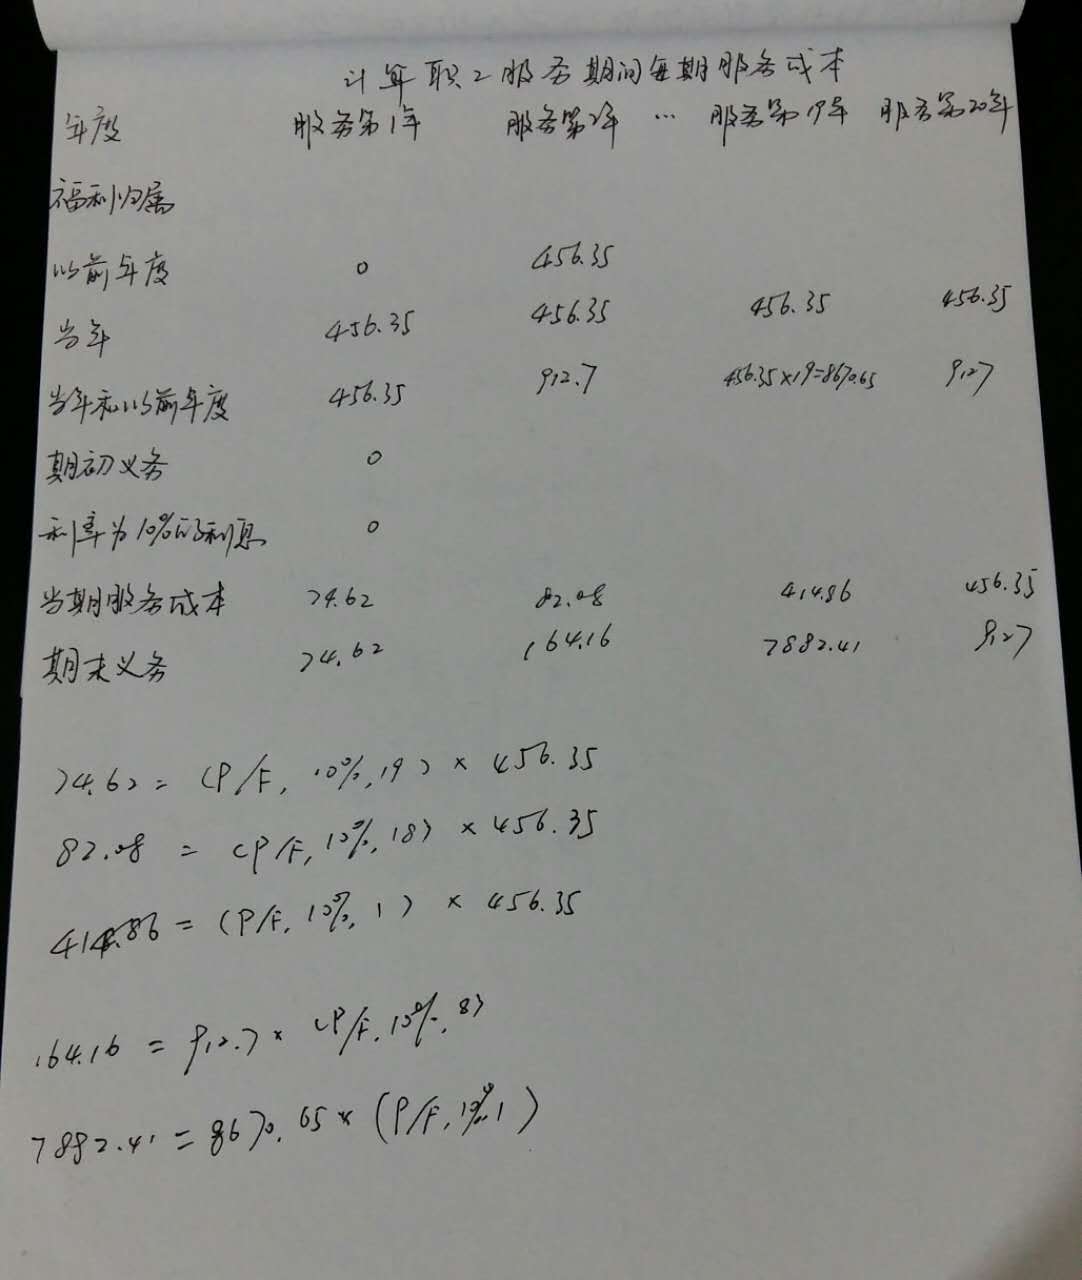 计算职工服务期间每期服务成本
年度 服务第1年 服务第2年 … 服务第19年 服务第20年
福利归属
以前年度 0 456.35
当年 456.35 456.35 456.35 456.35
当年和以前年度 456.35 912.7 456.35×19=8670.65 9127
期初义务 0
利率为10%的利息 0
当期服务成本 74.62 82.08 414.86 456.35
期末义务 74.62 164.16 7882.41 9127
74.62 = (P/F, 10%, 19) × 456.35
82.08 = (P/F, 10%, 18) × 456.35
414.86 = (P/F, 10%, 1) × 456.35
164.16 = 912.7 × (P/F, 10%, 8)
7882.41 = 8670.65 × (P/F, 10%, 1)